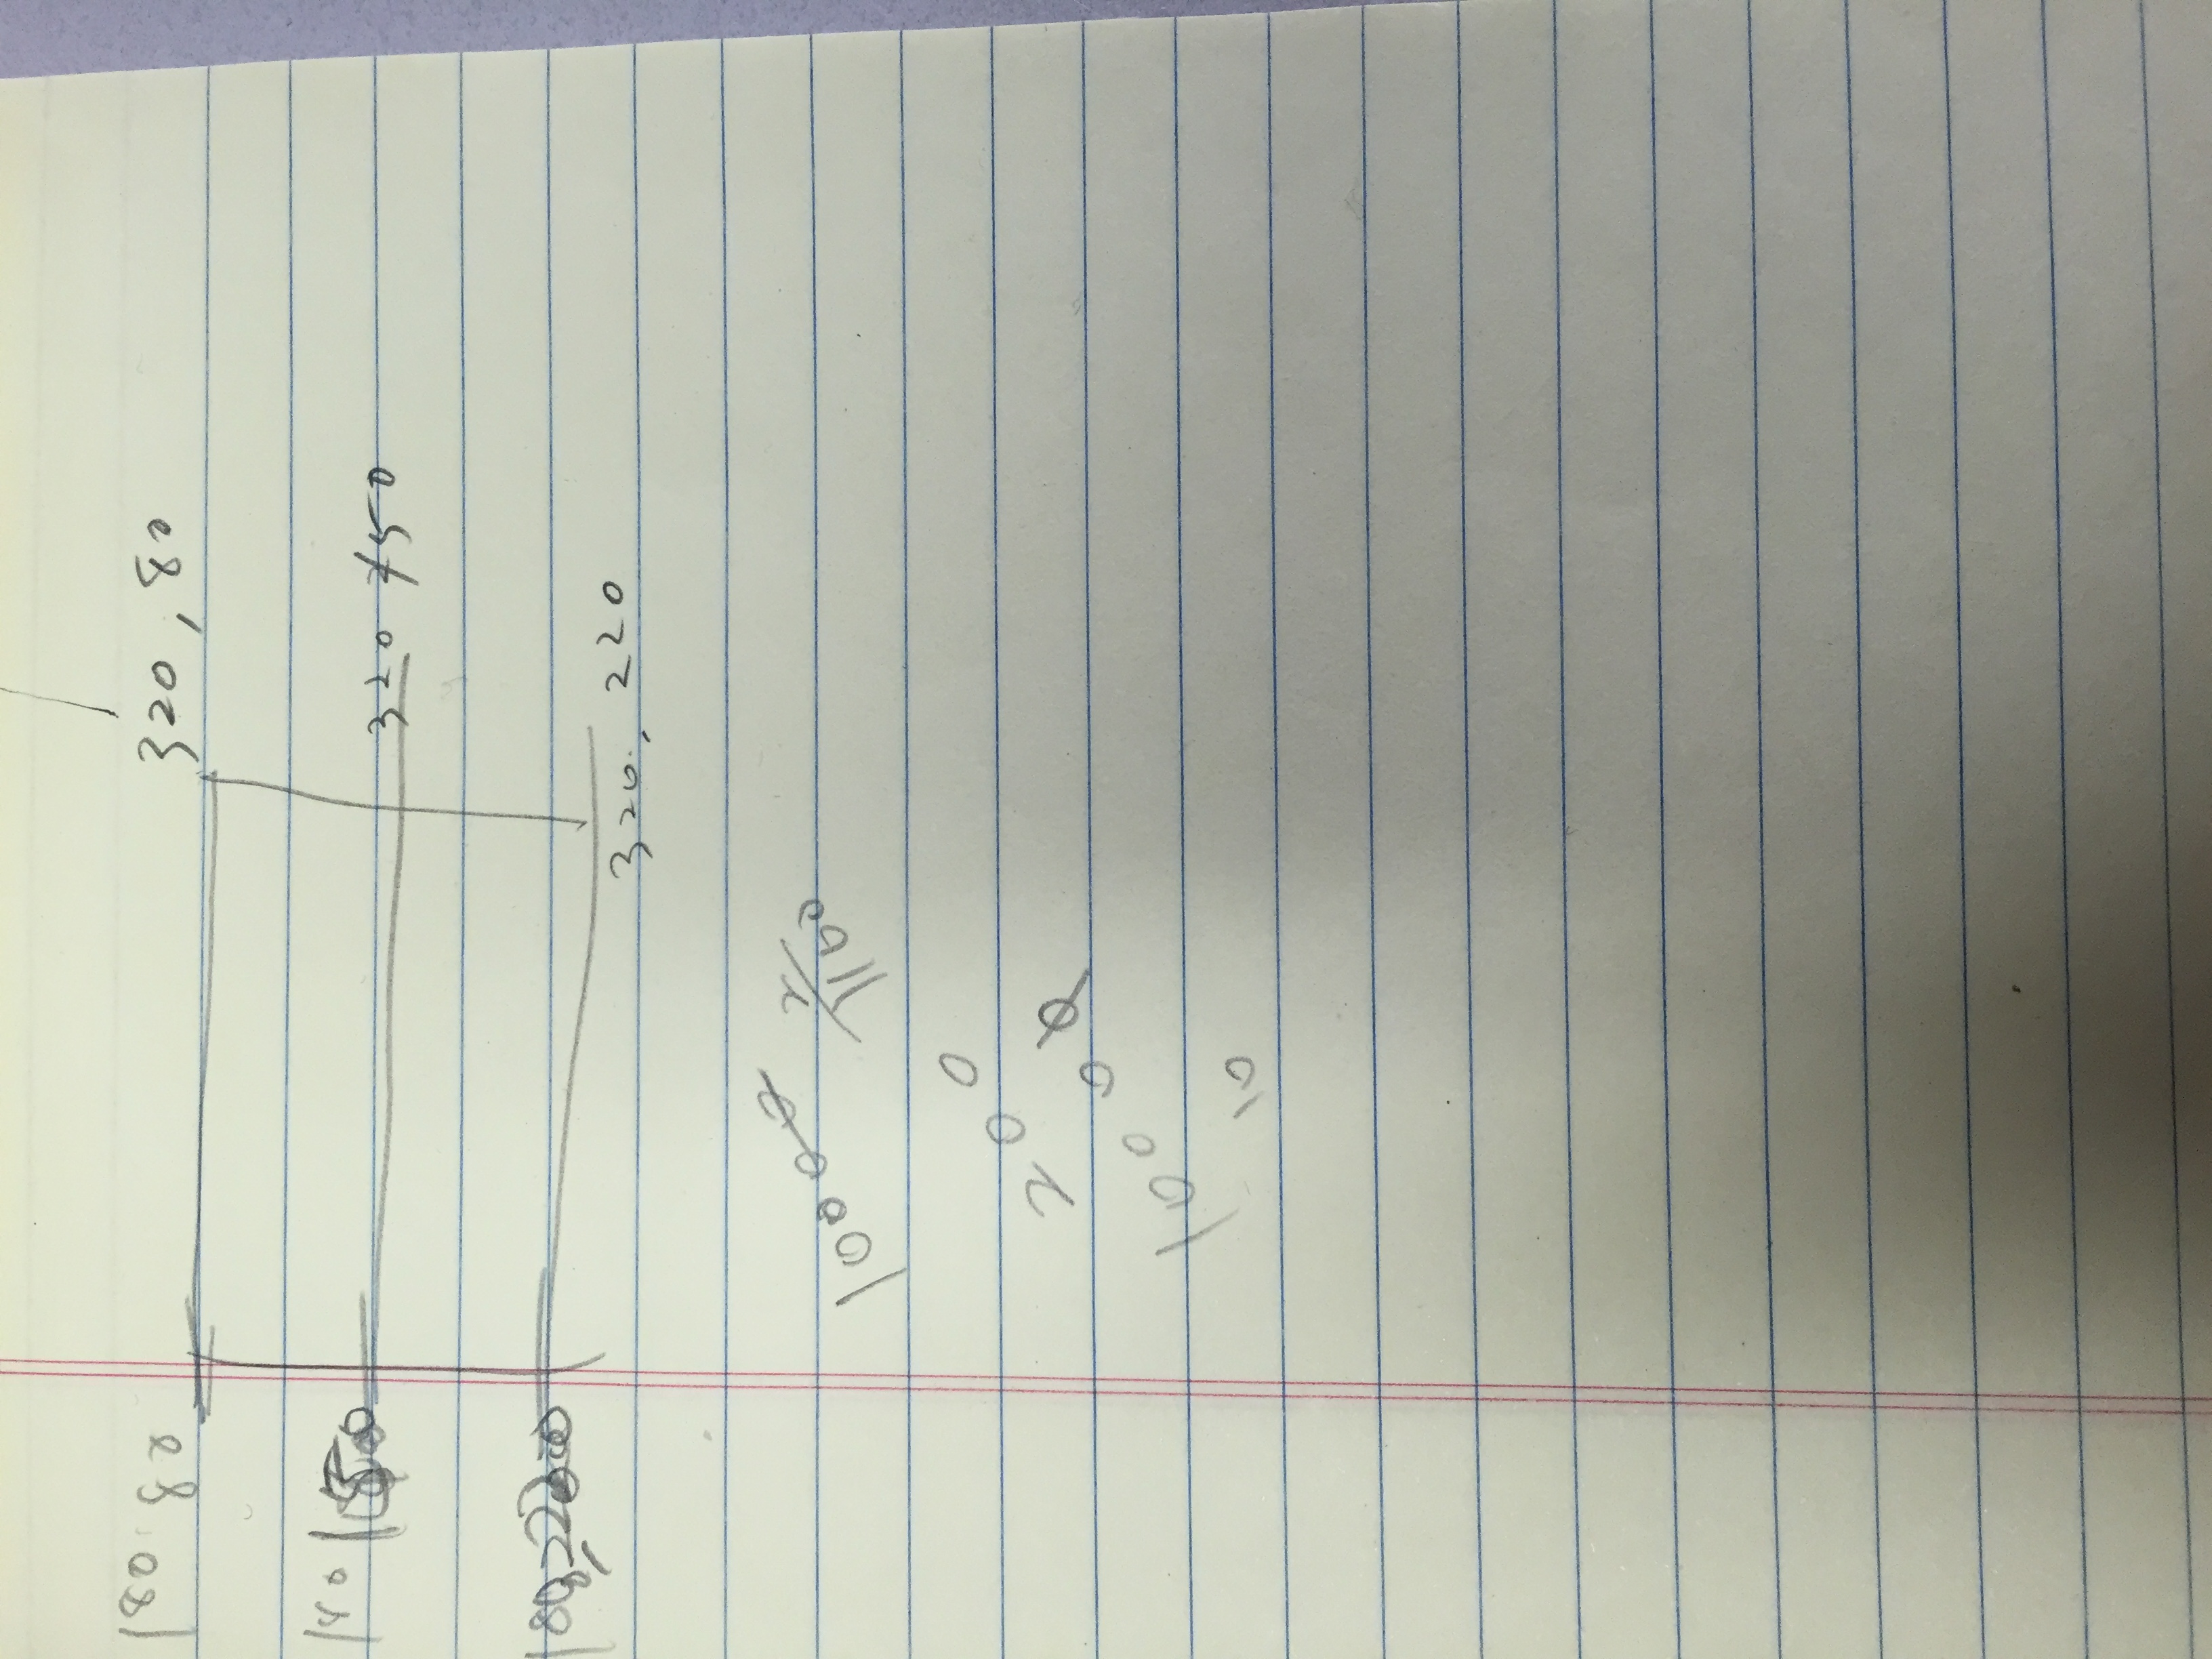 180 80
320, 80
180 150
320 150
180, 220
320, 220
10000
2
1100
200
10000
10